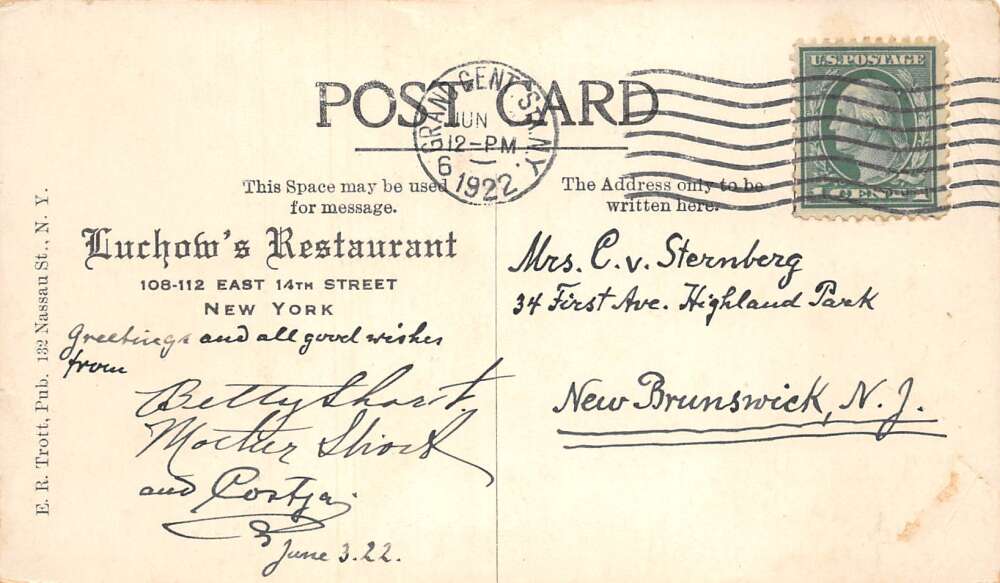 POST CARD
GRAND CENT. STA. N.Y.
JUN
12-PM
6
1922
U.S. POSTAGE
This Space may be used
for message.
The Address only to be
written here.
Luchow's Restaurant
108-112 EAST 14TH STREET
NEW YORK
Greetings and all good wishes
from
Betty Short
Mother Short
and
June 3.22.
Mrs. C. v. Sternberg
34 First Ave. Highland Park
New Brunswick, N. J.
E. R. Trott, Pub. 132 Nassau St., N. Y.